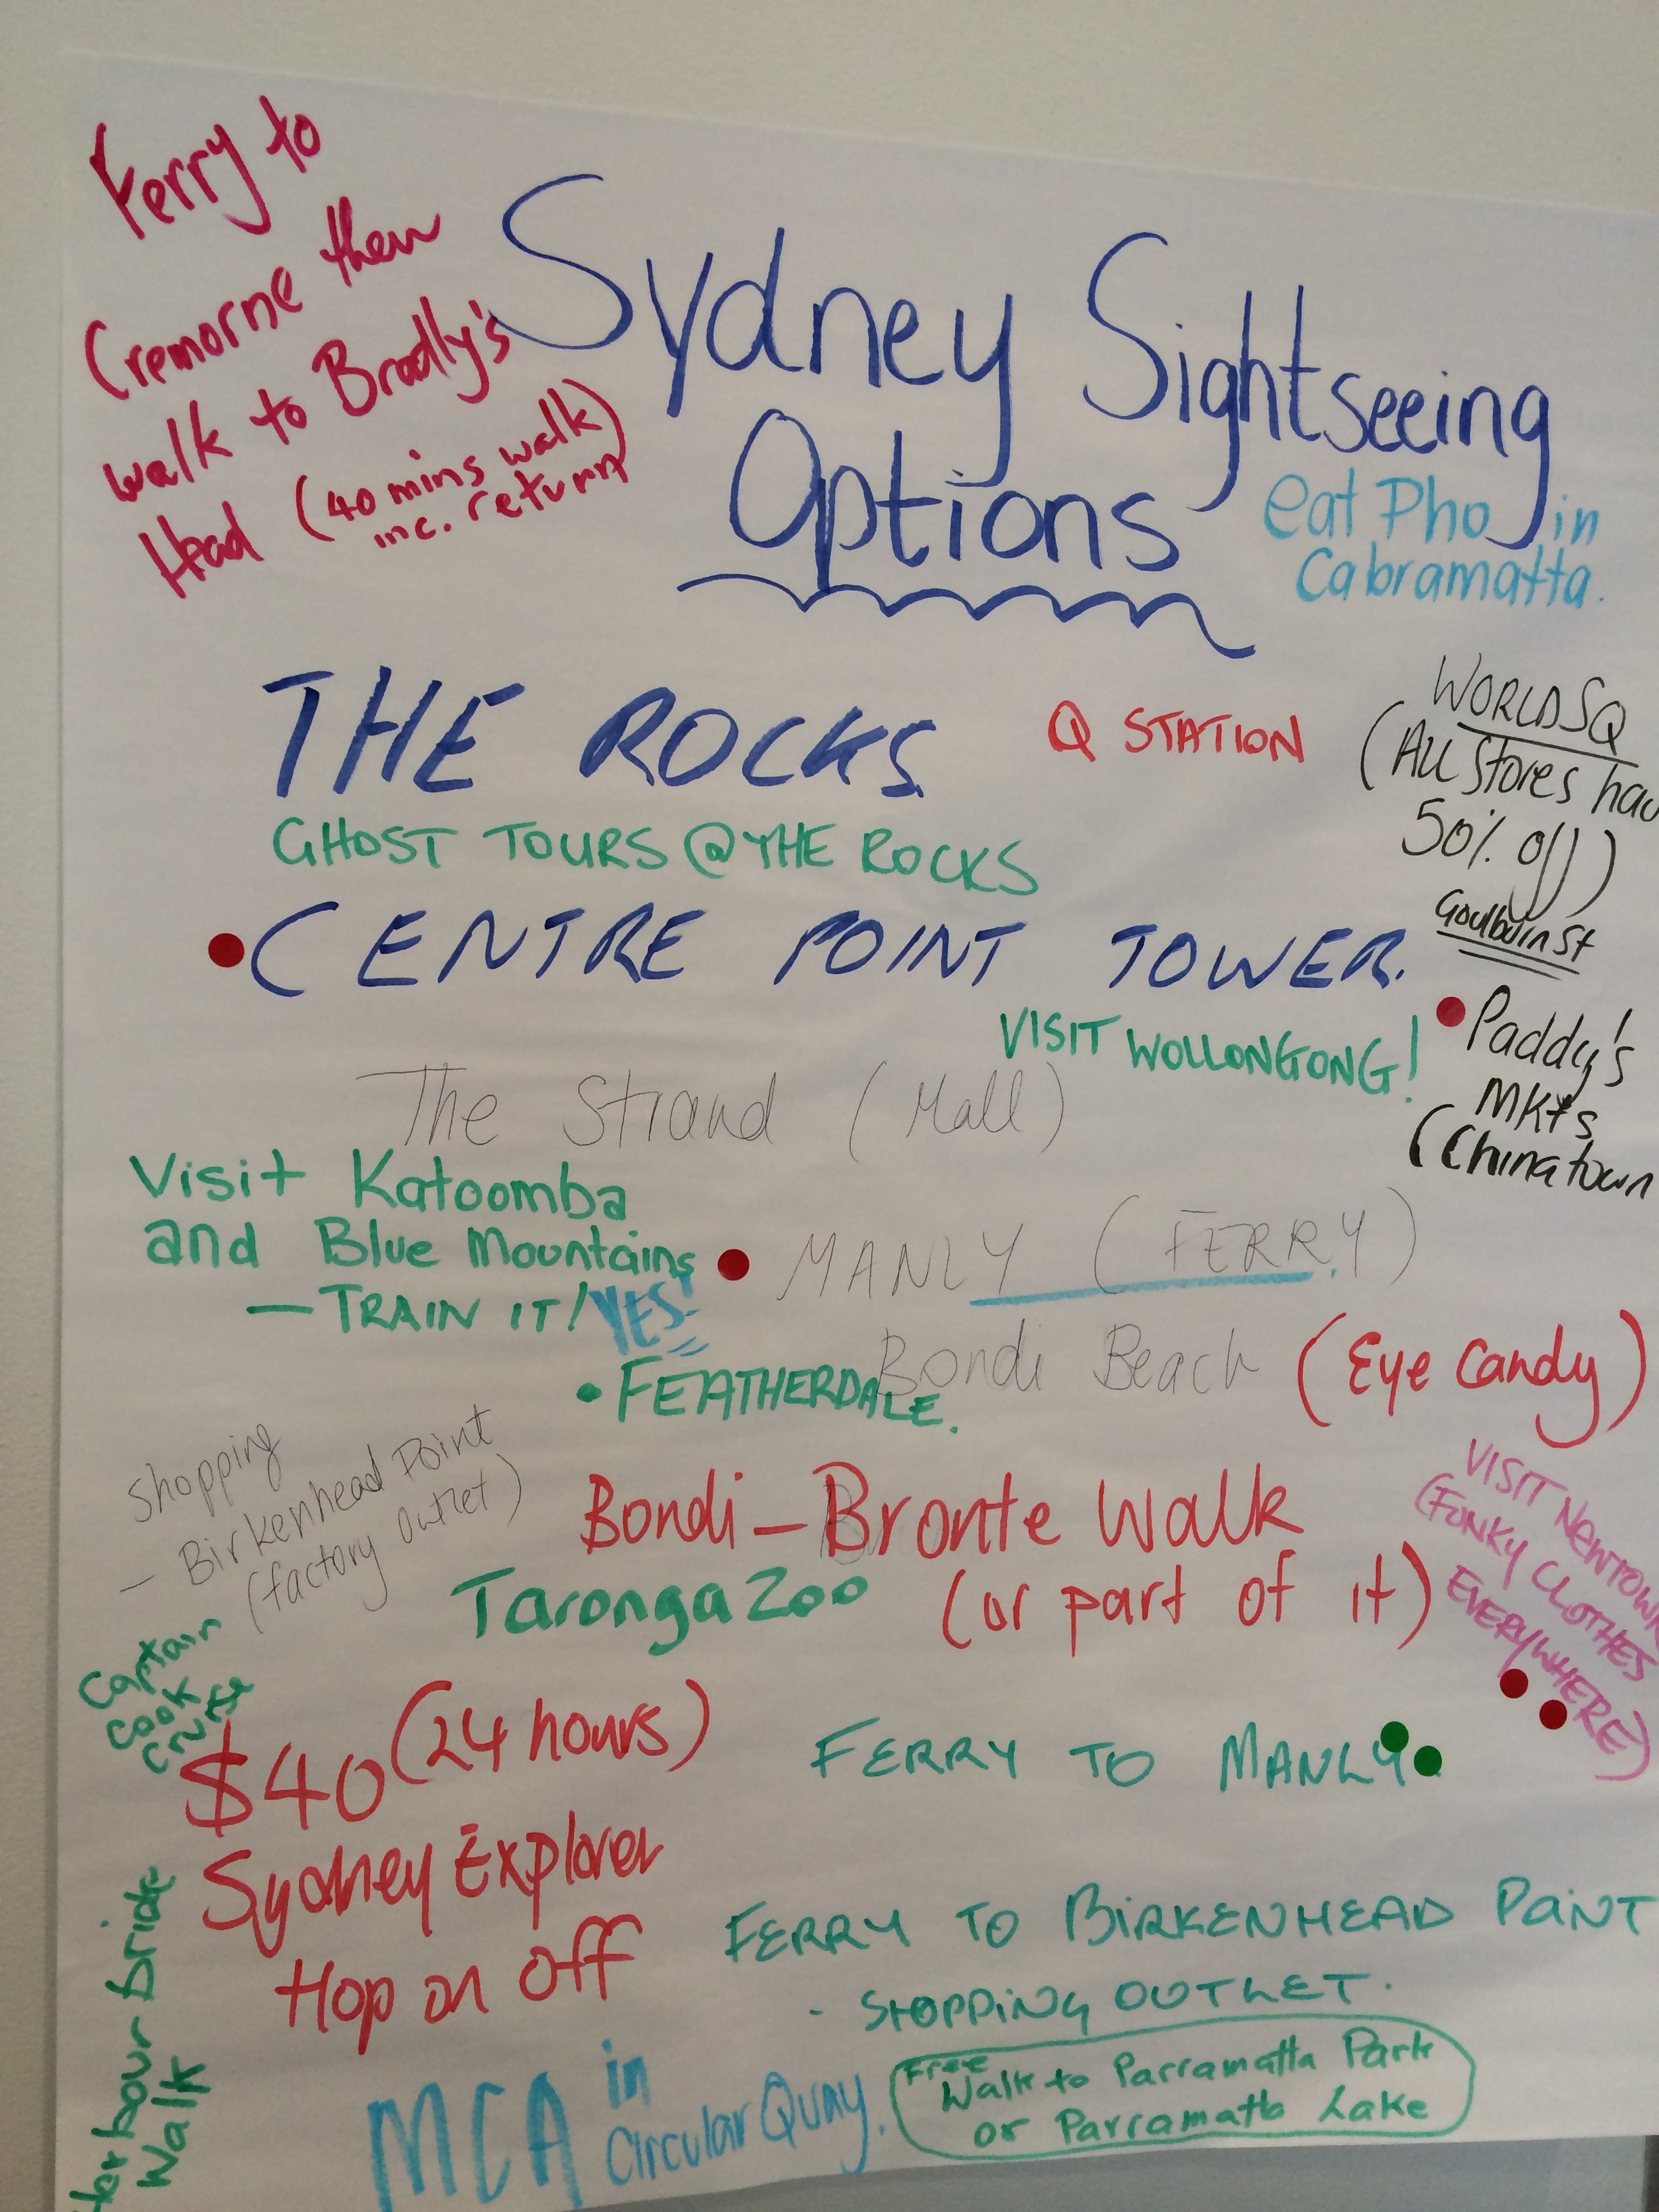 Ferry to
Cremorne then
walk to Bradly's
Head (40 mins walk)
inc. return
Sydney Sightseeing
Options
eat Pho in
Cabramatta.
THE ROCKS
Q STATION
WORLD SQ
(All stores hav
50% off)
Goulburn St
GHOST TOURS @ THE ROCKS
• CENTRE POINT TOWER.
VISIT WOLLONGONG!
Paddy's
MKTs
(Chinatown
The Strand (Mall)
Visit Katoomba
and Blue Mountains
— TRAIN IT! YES!
MANLY (FERRY)
Bondi Beach (Eye Candy)
• FEATHERDALE.
Shopping
— Birkenhead Point
(factory outlet)
Bondi – Bronte Walk
(or part of it)
Taronga Zoo
VISIT NEWTOWN
(FONKY CLOTHES
EVERYWHERE)
Captain
Cook
$40 (24 hours)
Sydney Explorer
Hop on Off
FERRY TO MANLY
FERRY TO BIRKENHEAD POINT
- SHOPPING OUTLET.
Harbour bride
Walk
MCA in
Circular Quay.
Free
Walk to Parramatta Park
or Parramatta Lake